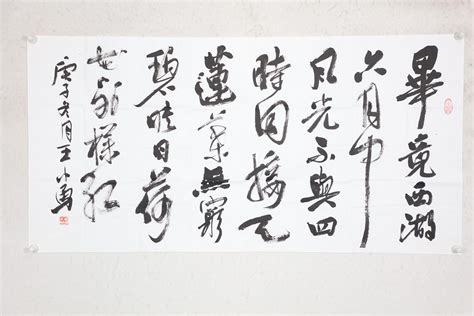 畢竟西湖
六月中
风光不與四
時同接天
蓮葉無窮
碧映日荷
花别樣紅
庚子冬月王小勇